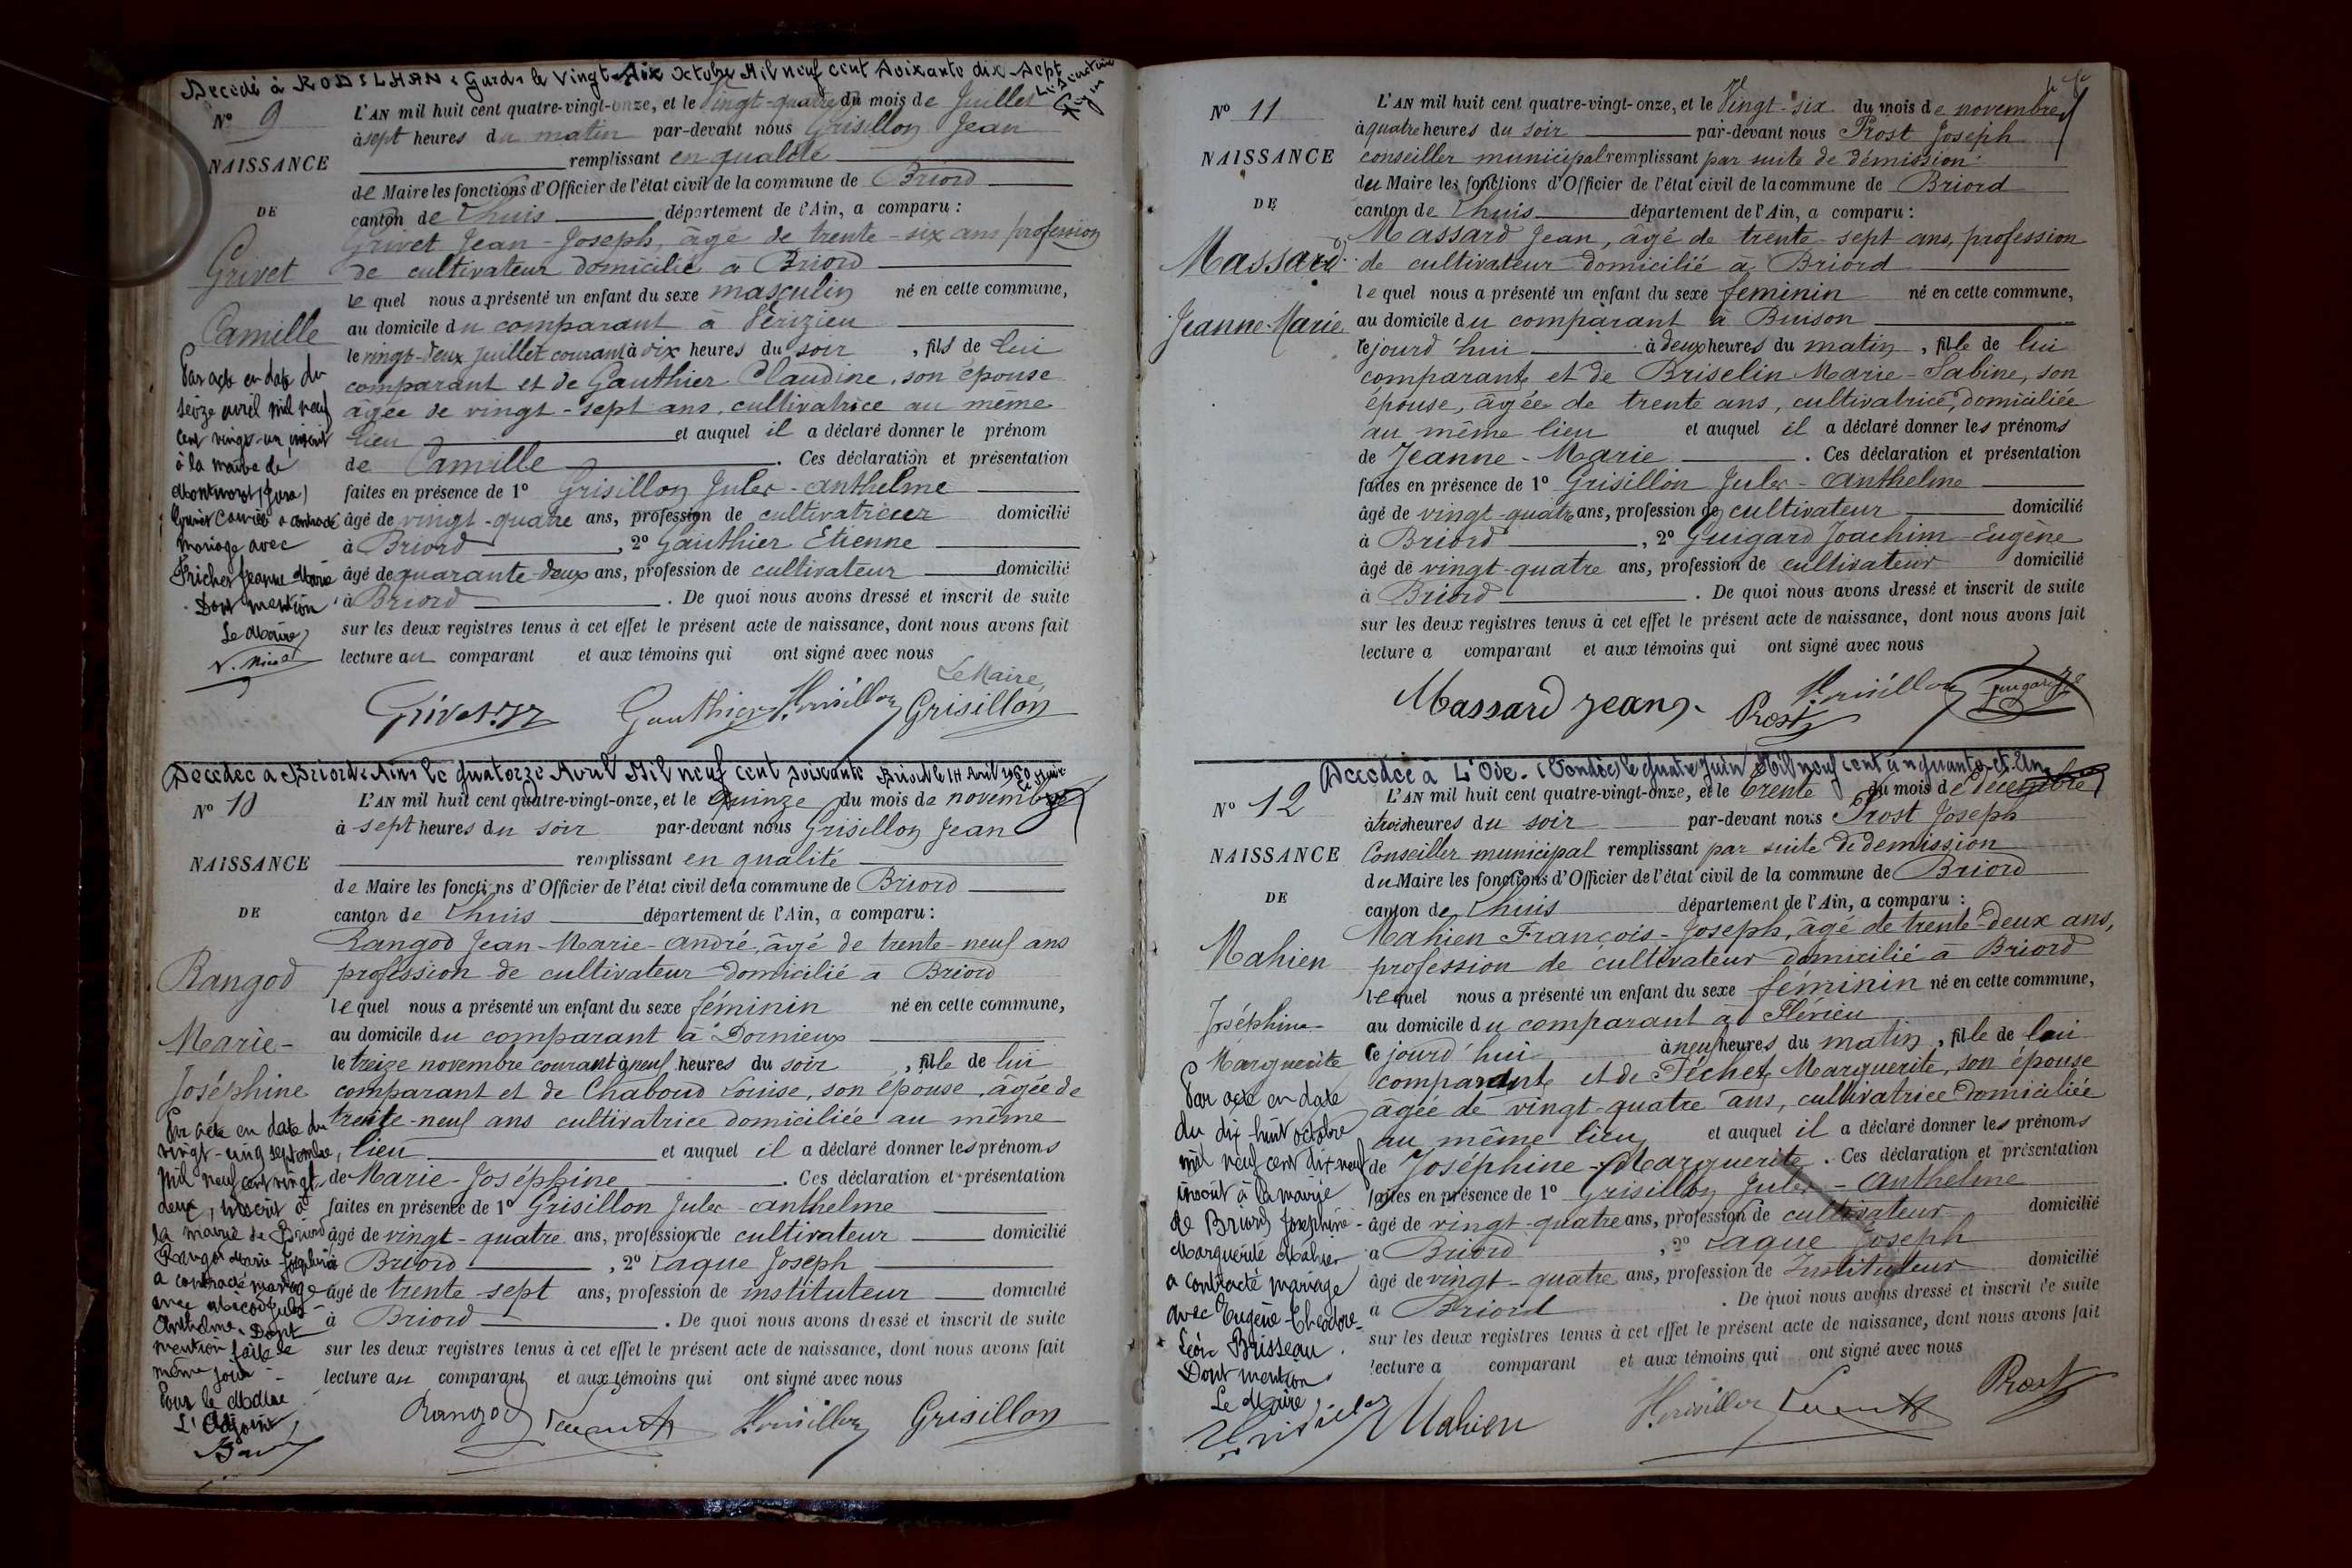 Décédé à RODILHAN (Gard) le Vingt-Six Octobre Mil neuf cent Soixante dix-Sept
N° 9
NAISSANCE
DE
Grivet
Camille
Par acte en date du
seize avril mil neuf
cent vingt-un, inscrit
à la mairie de
Montmorot (Jura)
Grivet Camille a contracté
mariage avec
Jeanne Marie
Dont mention
Le Maire
L'AN mil huit cent quatre-vingt-onze, et le Vingt-quatre du mois de Juillet
à sept heures du matin par-devant nous Grisillon Jean
remplissant en qualité
de Maire les fonctions d'Officier de l'état civil de la commune de Briord
canton de Lhuis département de l'Ain, a comparu :
Grivet Jean-Joseph, âgé de trente-six ans profession
de cultivateur domicilié à Briord
lequel nous a présenté un enfant du sexe masculin né en cette commune,
au domicile du comparant à Vérizieu
le vingt-deux Juillet courant à dix heures du soir, fils de lui
comparant et de Gauthier Claudine, son épouse
âgée de vingt-sept ans, cultivatrice au même
lieu et auquel il a déclaré donner le prénom
de Camille. Ces déclaration et présentation
faites en présence de 1° Grisillon Jules-Anthelme
âgé de vingt-quatre ans, profession de domicilié
à Briord, 2° Gauthier Etienne
âgé de quarante-deux ans, profession de cultivateur domicilié
à Briord. De quoi nous avons dressé et inscrit de suite
sur les deux registres tenus à cet effet le présent acte de naissance, dont nous avons fait
lecture au comparant et aux témoins qui ont signé avec nous
Le Maire,
Grivet Gauthier Grisillon Grisillon
Décédée à Briord (Ain) le quatorze Avril Mil neuf cent soixante Briord le 14 Avril 1960
N° 10
NAISSANCE
DE
Rangod
Marie-
Joséphine
Par acte en date du
vingt-cinq septembre,
mil neuf cent vingt
deux, inscrit à
la mairie de Briord
Rangod Marie Joséphine
a contracté mariage
avec Jules
Anthelme. Dont
mention faite le
même jour
Pour le Maire
L'Adjoint
L'AN mil huit cent quatre-vingt-onze, et le Quinze du mois de novembre
à sept heures du soir par-devant nous Grisillon Jean
remplissant en qualité
de Maire les fonctions d'Officier de l'état civil de la commune de Briord
canton de Lhuis département de l'Ain, a comparu :
Rangod Jean-Marie-André, âgé de trente-neuf ans
profession de cultivateur domicilié à Briord
lequel nous a présenté un enfant du sexe féminin né en cette commune,
au domicile du comparant à Dornieux
le treize novembre courant à neuf heures du soir, fille de lui
comparant et de Chaboud Louise, son épouse, âgée de
trente-neuf ans cultivatrice domiciliée au même
lieu et auquel il a déclaré donner les prénoms
de Marie-Joséphine. Ces déclaration et présentation
faites en présence de 1° Grisillon Jules-Anthelme
âgé de vingt-quatre ans, profession de cultivateur domicilié
à Briord, 2° Laque Joseph
âgé de trente-sept ans, profession de instituteur domicilié
à Briord. De quoi nous avons dressé et inscrit de suite
sur les deux registres tenus à cet effet le présent acte de naissance, dont nous avons fait
lecture au comparant et aux témoins qui ont signé avec nous
Rangod Grisillon Grisillon
N° 11
NAISSANCE
DE
Massard
Jeanne-Marie
L'AN mil huit cent quatre-vingt-onze, et le Vingt-six du mois de novembre
à quatre heures du soir par-devant nous Prost Joseph
conseiller municipal remplissant par suite de démission
du Maire les fonctions d'Officier de l'état civil de la commune de Briord
canton de Lhuis département de l'Ain, a comparu :
Massard Jean, âgé de trente-sept ans, profession
de cultivateur domicilié à Briord
lequel nous a présenté un enfant du sexe feminin né en cette commune,
au domicile du comparant à Buison
cejourd'hui à deux heures du matin, fille de lui
comparant et de Briselin Marie-Sabine, son
épouse, âgée de trente ans, cultivatrice, domiciliée
au même lieu et auquel il a déclaré donner les prénoms
de Jeanne-Marie. Ces déclaration et présentation
faites en présence de 1° Grisillon Jules-Anthelme
âgé de vingt-quatre ans, profession de cultivateur domicilié
à Briord, 2° Guigard Joachim-Eugène
âgé de vingt-quatre ans, profession de cultivateur domicilié
à Briord. De quoi nous avons dressé et inscrit de suite
sur les deux registres tenus à cet effet le présent acte de naissance, dont nous avons fait
lecture a comparant et aux témoins qui ont signé avec nous
Massard Jean Prost Grisillon Guigard
Décédée à L'Oie (Vendée) le quatre Juin Mil neuf cent cinquante et Un
N° 12
NAISSANCE
DE
Mahien
Joséphine-
Marguerite
Par acte en date
du dix-huit octobre
mil neuf cent dix-neuf
inscrit à la mairie
de Briord Joséphine-
Marguerite Mahien
a contracté mariage
avec Eugène-Théodore-
Léon Brisseau.
Dont mention
Le Maire,
L'AN mil huit cent quatre-vingt-onze, et le trente du mois de décembre
à trois heures du soir par-devant nous Prost Joseph
Conseiller municipal remplissant par suite de demission
du Maire les fonctions d'Officier de l'état civil de la commune de Briord
canton de Lhuis département de l'Ain, a comparu :
Mahien François-Joseph, âgé de trente-deux ans,
profession de cultivateur domicilié à Briord
lequel nous a présenté un enfant du sexe féminin né en cette commune,
au domicile du comparant à Flévieu
cejourd'hui à neuf heures du matin, fille de lui
comparant et de Péchet Marguerite, son épouse
âgée de vingt-quatre ans, cultivatrice domiciliée
au même lieu et auquel il a déclaré donner les prénoms
de Joséphine-Marguerite. Ces déclaration et présentation
faites en présence de 1° Grisillon Jules-Anthelme
âgé de vingt-quatre ans, profession de cultivateur domicilié
à Briord, 2° Laque Joseph
âgé de vingt-quatre ans, profession de Instituteur domicilié
à Briord. De quoi nous avons dressé et inscrit de suite
sur les deux registres tenus à cet effet le présent acte de naissance, dont nous avons fait
lecture a comparant et aux témoins qui ont signé avec nous
Mahien Grisillon Prost